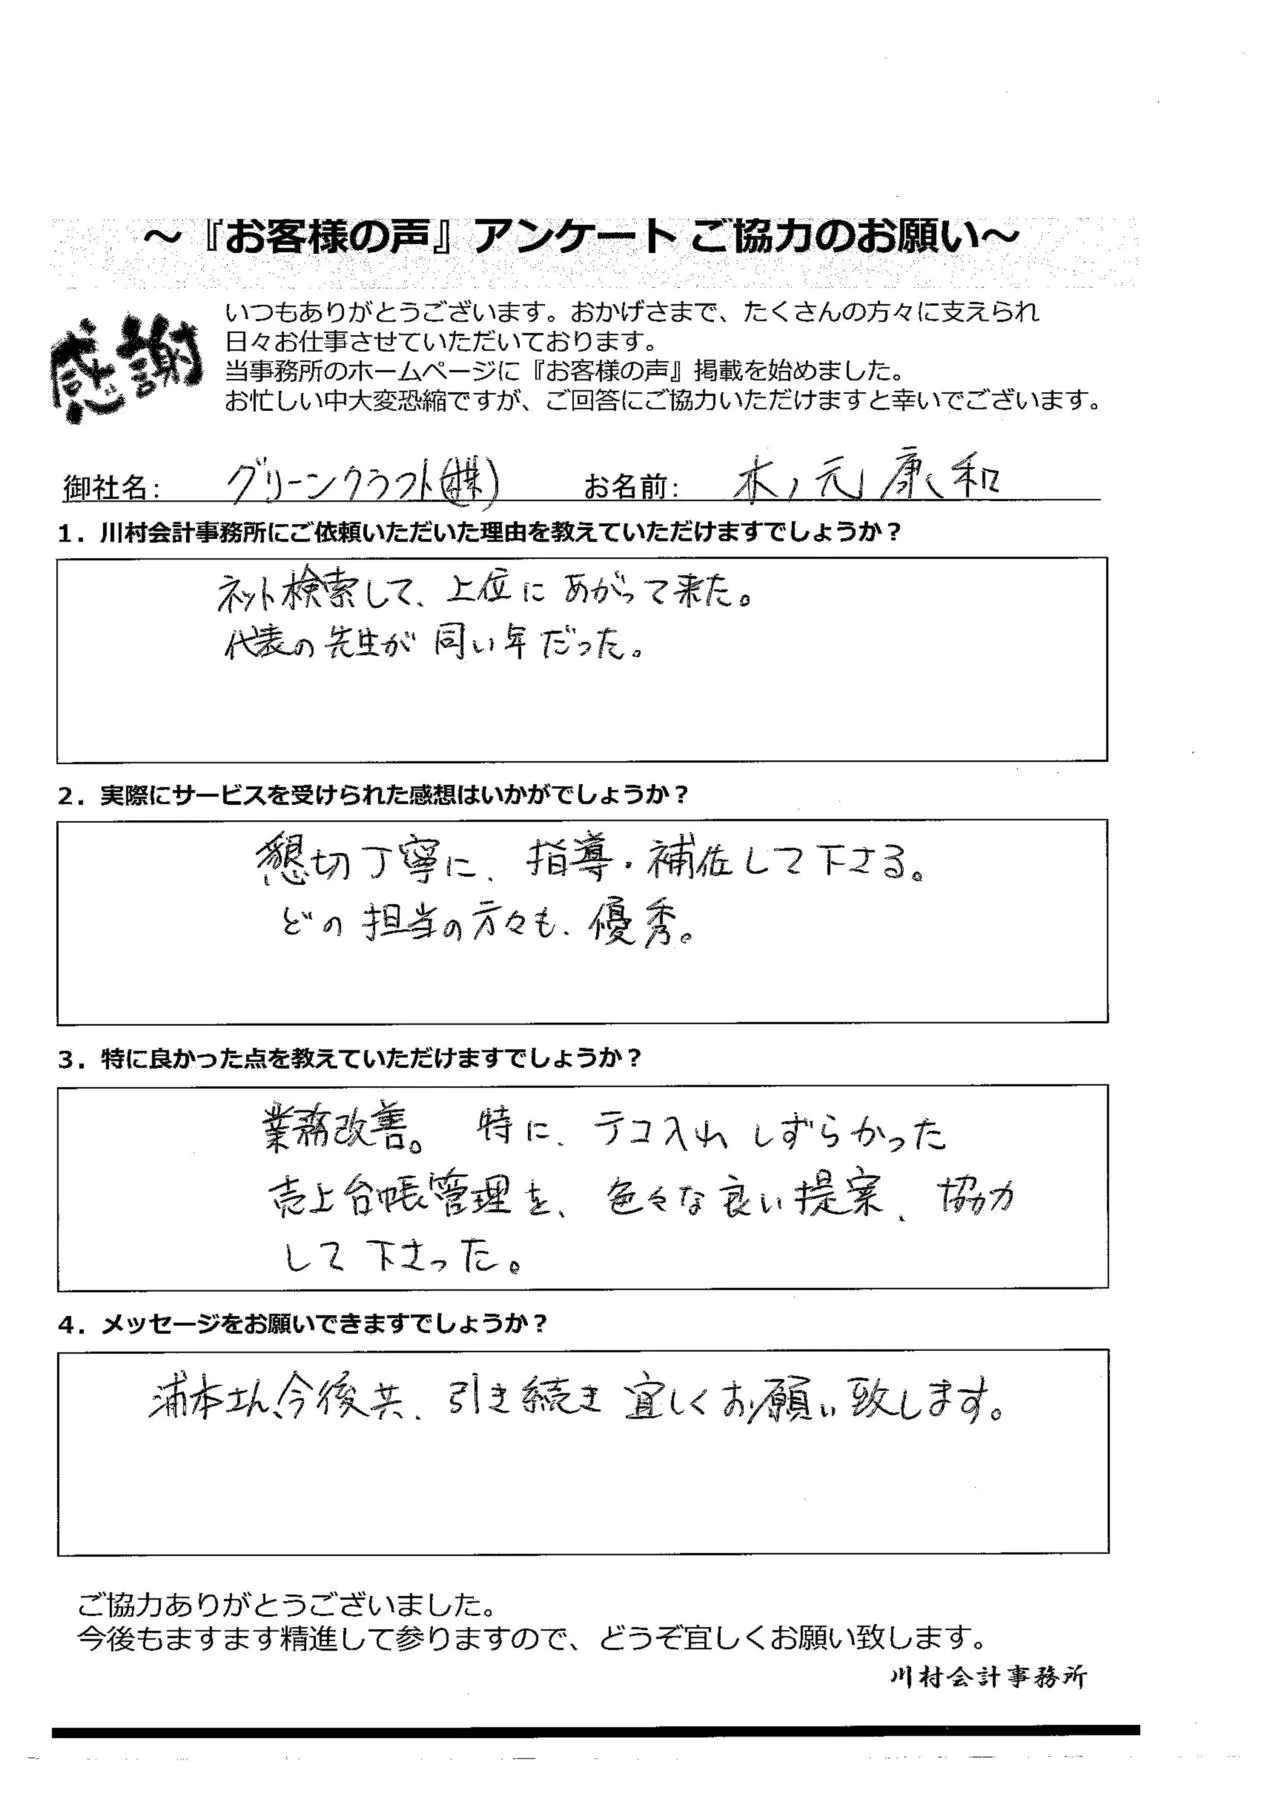 ～『お客様の声』アンケート ご協力のお願い～
感謝
いつもありがとうございます。おかげさまで、たくさんの方々に支えられ
日々お仕事させていただいております。
当事務所のホームページに『お客様の声』掲載を始めました。
お忙しい中大変恐縮ですが、ご回答にご協力いただけますと幸いでございます。
御社名: グリーンクラフト(株) お名前: 木ノ元 康和
1．川村会計事務所にご依頼いただいた理由を教えていただけますでしょうか？
ネット検索して、上位にあがって来た。
代表の先生が同い年だった。
2．実際にサービスを受けられた感想はいかがでしょうか？
懇切丁寧に、指導・補佐して下さる。
どの担当の方々も、優秀。
3．特に良かった点を教えていただけますでしょうか？
業務改善。 特に、テコ入れしずらかった
売上台帳管理を、色々な良い提案、協力
して下さった。
4．メッセージをお願いできますでしょうか？
浦本さん、今後共、引き続き宜しくお願い致します。
ご協力ありがとうございました。
今後もますます精進して参りますので、どうぞ宜しくお願い致します。
川村会計事務所